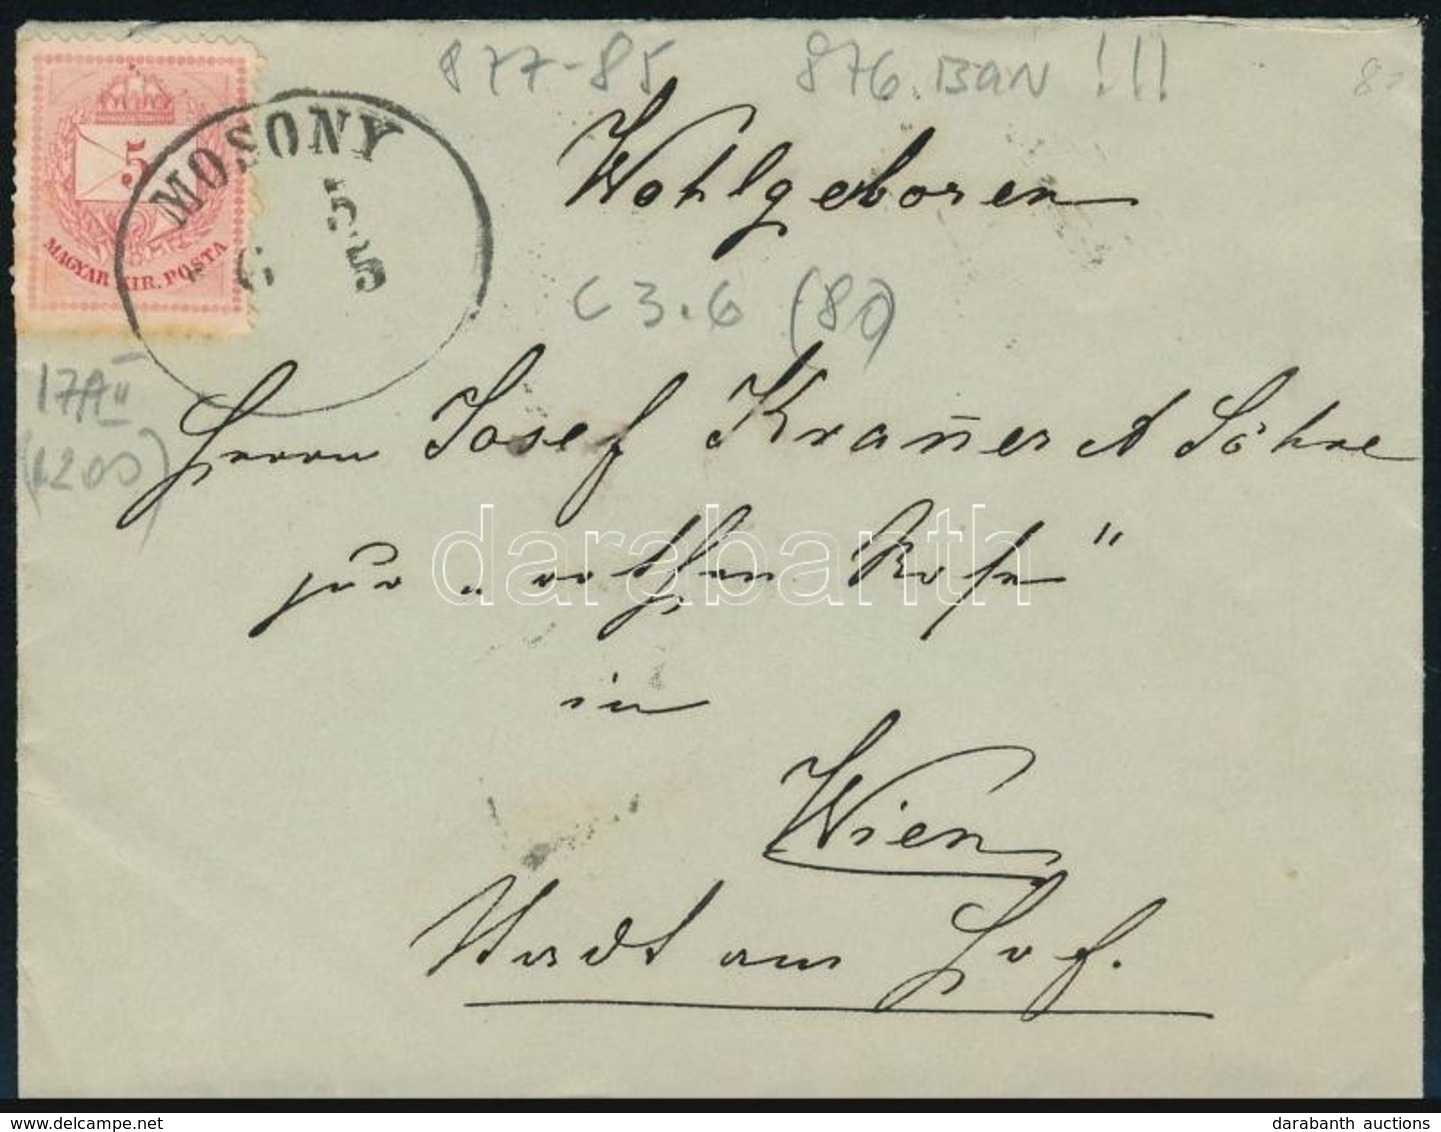 877-85 876.BAN !!!
5
MAGYAR KIR. POSTA
MOSONY
5
5
6
Wohlgeboren
C 3.6 (80)
17A II
(1200)
Herrn Josef Krañer & Söhne
zur „rothen Rose"
in
Wien
Stadt am Hof.
darabanth
darabanth auctions